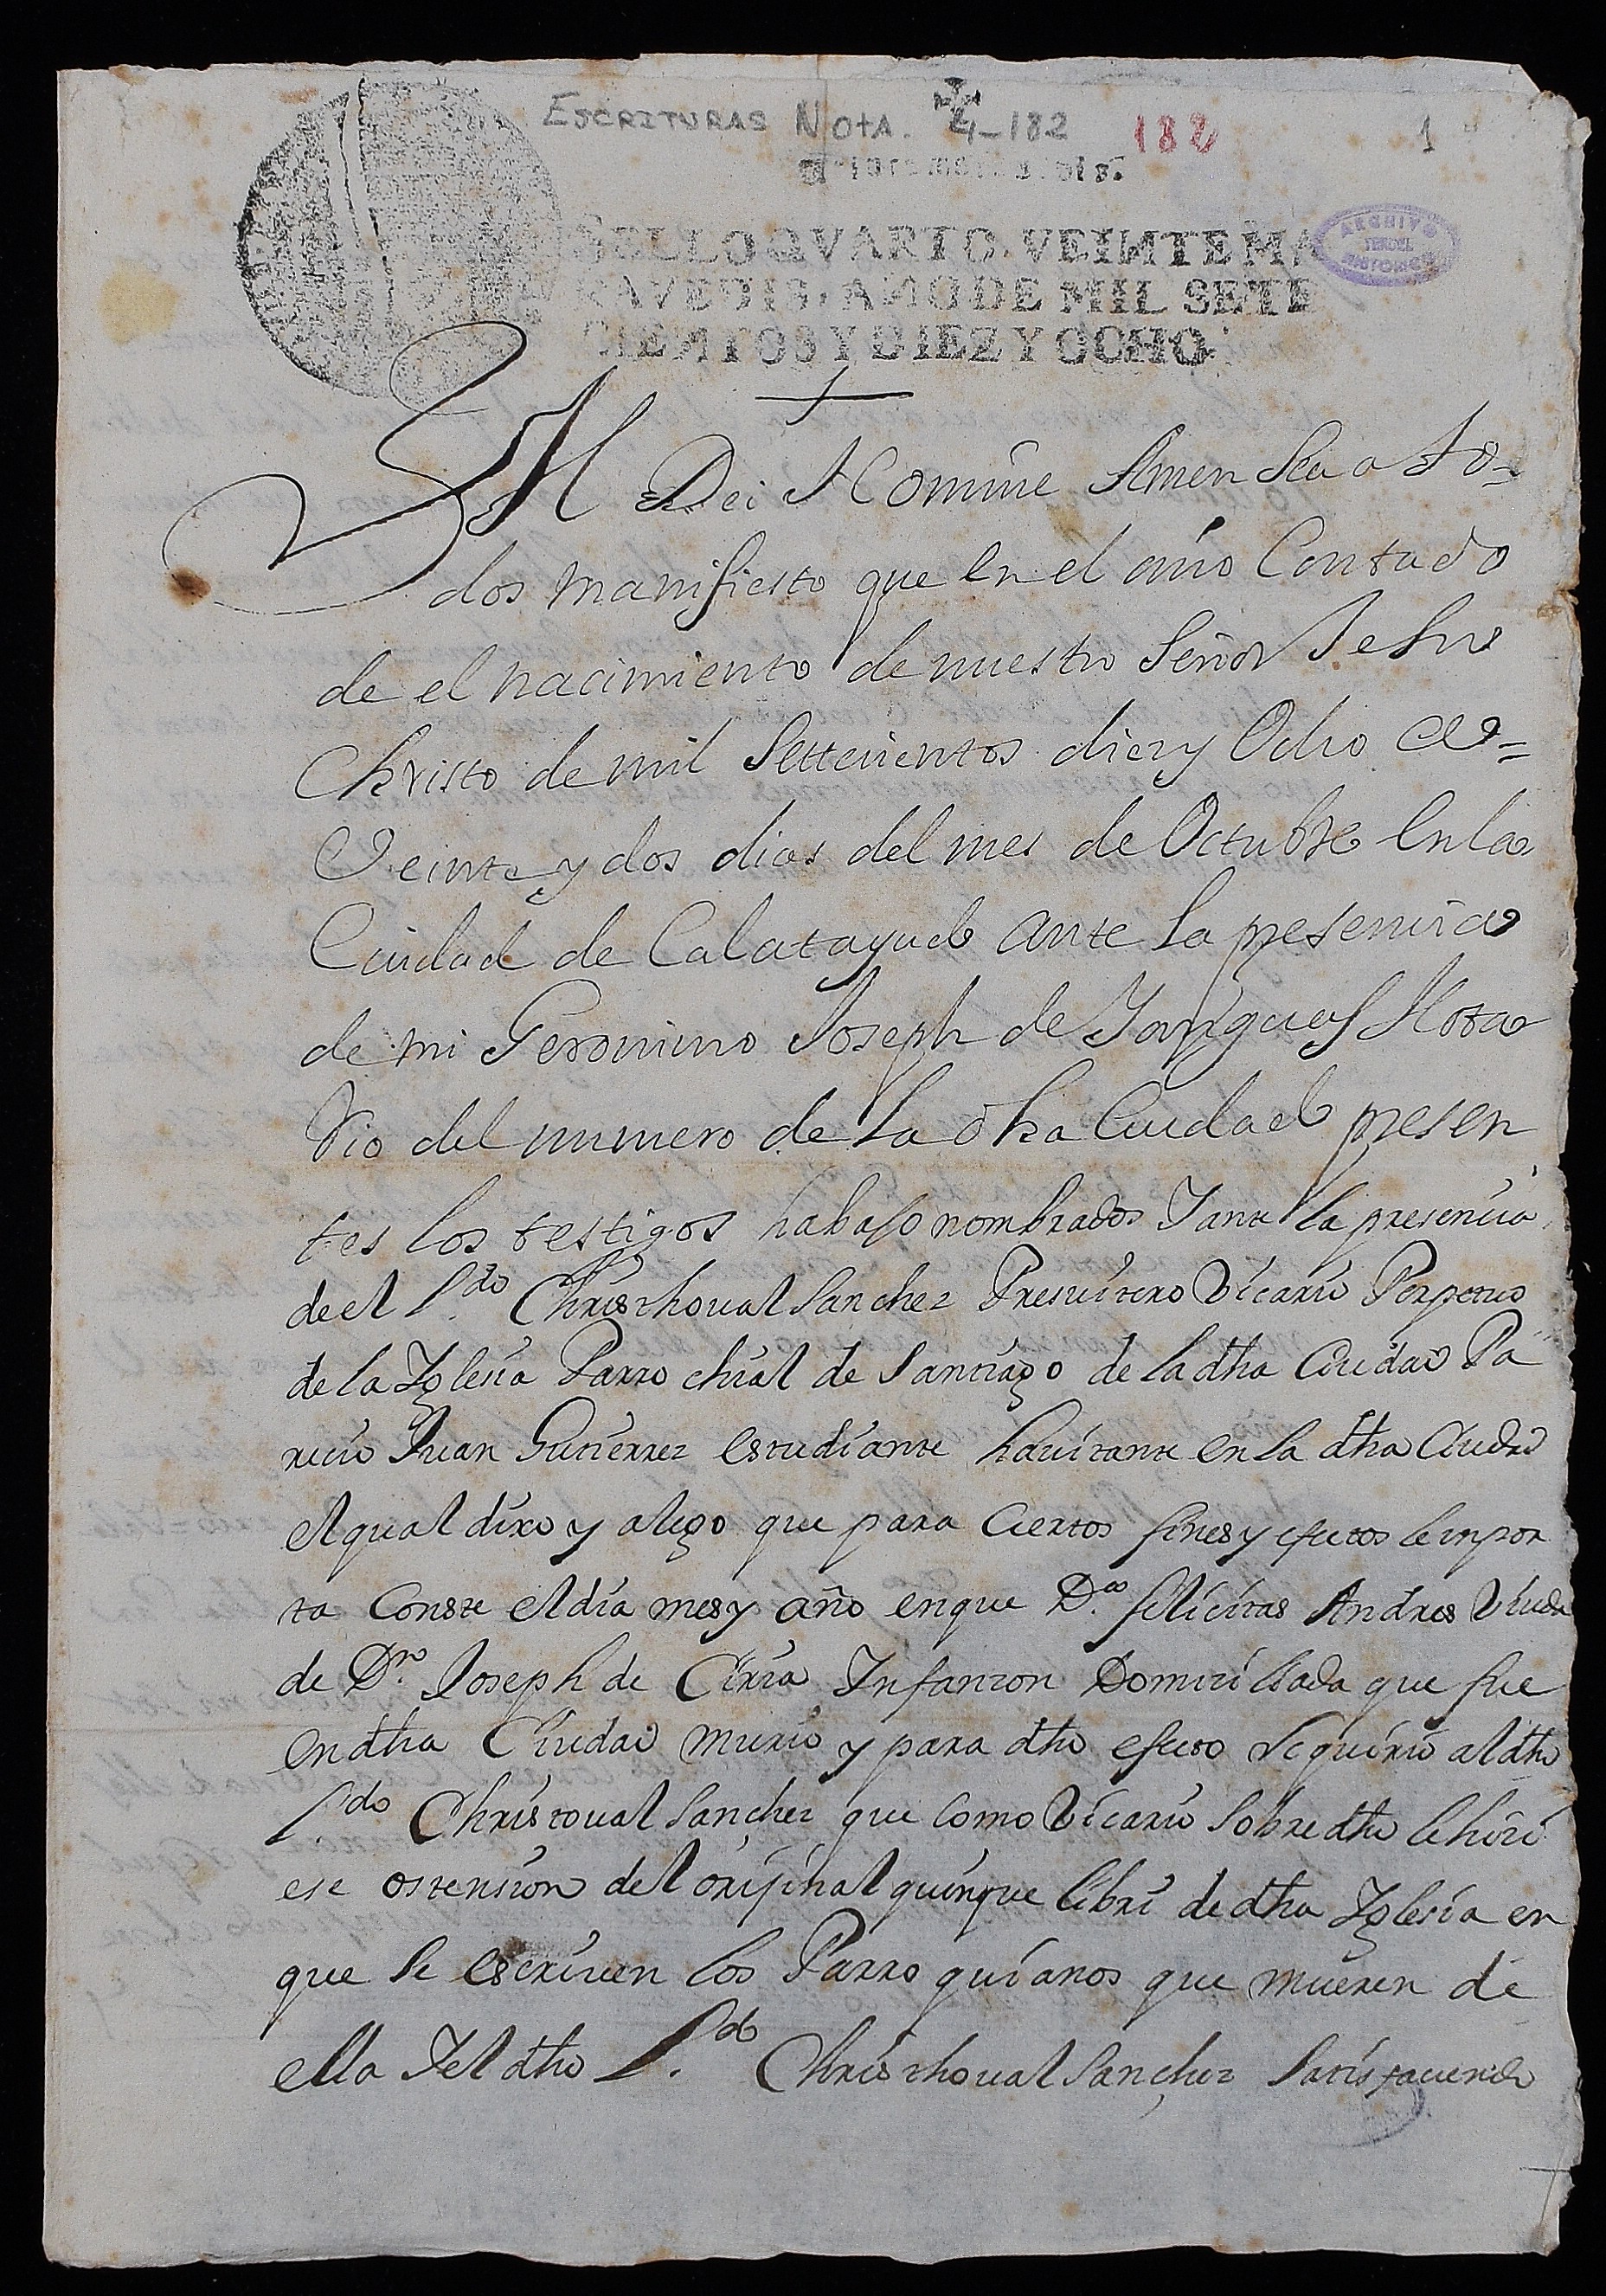 ESCRITURAS NOTA. 4-182 182 1
SELLO QVARTO, VEINTE MA
RAVEDIS, AÑO DE MIL SETE
CIENTOS Y DIEZ Y OCHO.
ARCHIVO
TERUEL
HISTORICO
IN Dei Nomine Amen Sea a to-
dos manifiesto que en el año Contado
de el nacimiento de nuestro Señor Jesu
Christo de mil Settecientos diez y Ocho a=
Veinte y dos dias del mes de Octubre en la
Ciudad de Calatayud ante la presencia
de mi Geronimo Joseph de Yanguas Nota
rio del numero de la dha Ciudad presen
tes los testigos habajo nombrados Y ante la presencia
de el L.do Christhoual Sanchez Presvitero Vicario Perpetuo
de la Yglesia Parrochial de Santiago de la dha Ciudad Pa
recio Juan Gutierrez estudiante havitante en la dha Ciudad
el qual dixo y alego que para ciertos fines y efectos le impor
ta conste el dia mes y año en que D.a felicitas Andres Viuda
de D.n Joseph de Ciria Infanzon Domiciliada que fue
en dha Ciudad murio y para dho efecto Requirio al dho
L.do Christoual Sanchez que como Vicario sobredho le hici
ese ostension del orijinal quinque libri de dha Yglesia en
que se escriven los Parroquianos que mueren de
ella Y el dho L.do Christhoual Sanchez Satisfaciendo